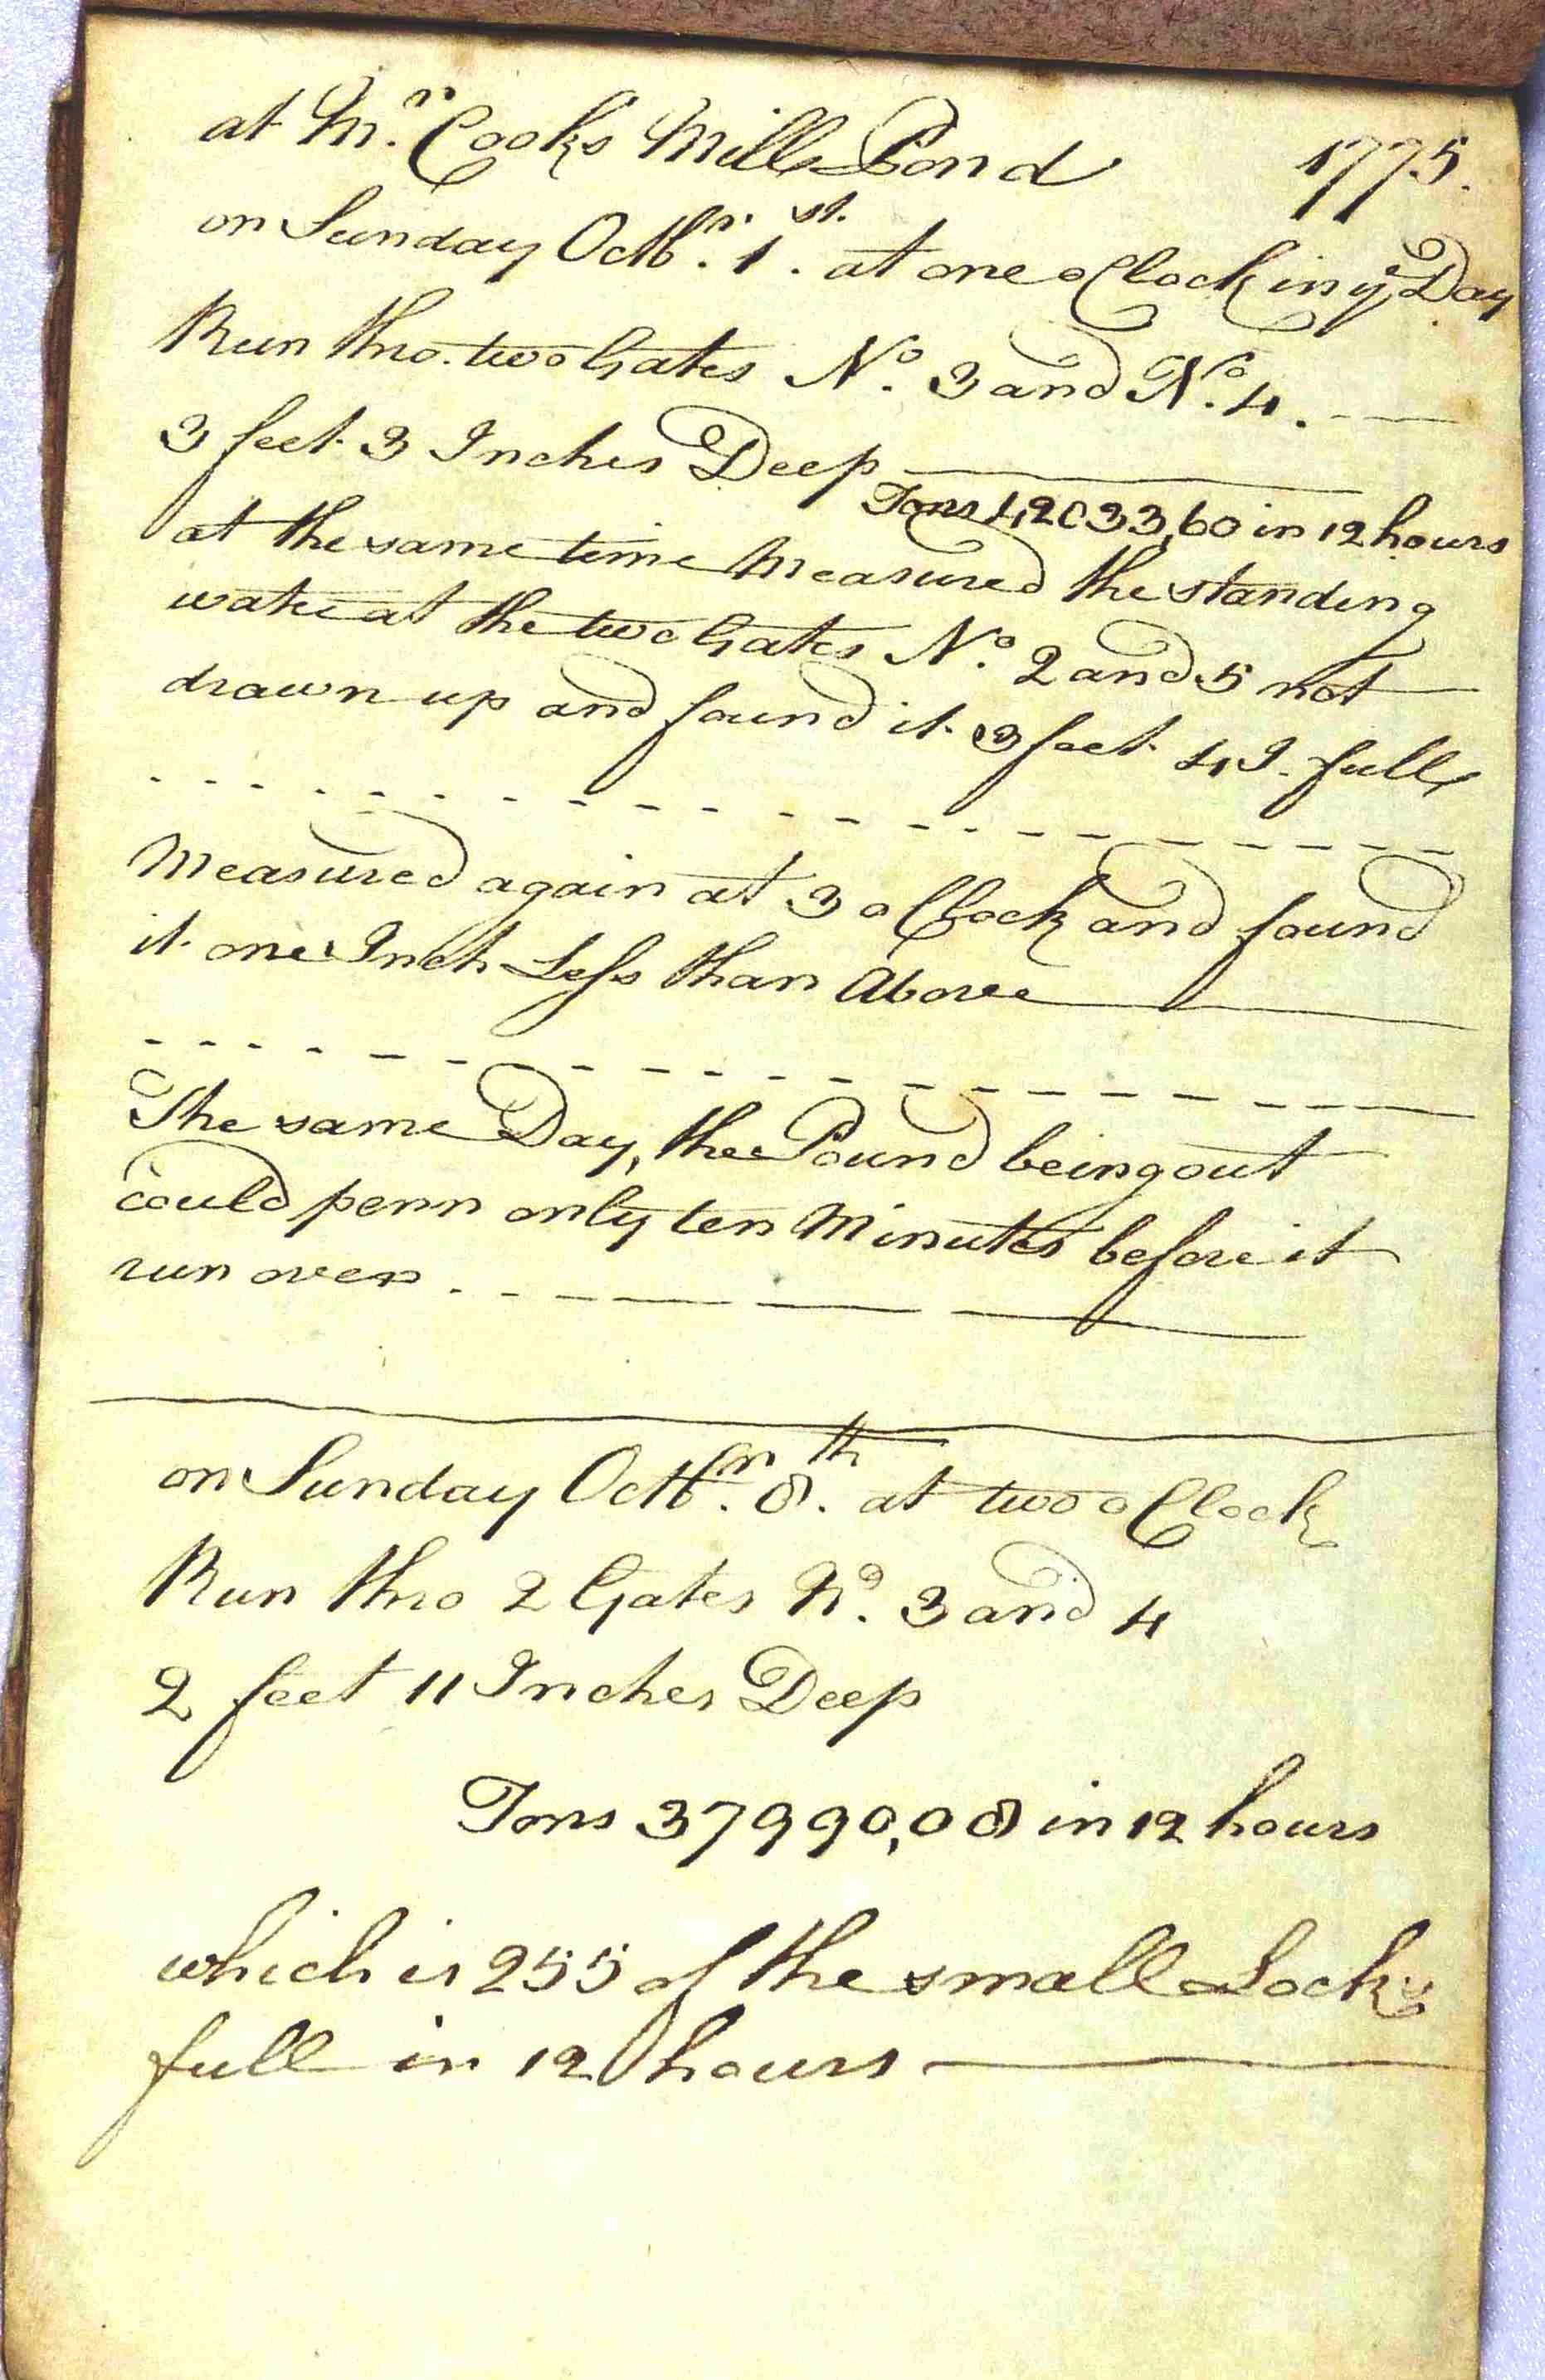 at Mr. Cooks Mill Pond 1775.
on Sunday Octbr. 1st. at one o Clock in ye Day
Run thro. two Gates No. 3 and No. 4.
3 feet 3 Inches Deep
Tons 42033,60 in 12 hours
at the same time Measured the standing
water at the two Gates No. 2 and 5 not
drawn up and found it 3 feet 4 I. full
Measured again at 3 o Clock and found
it one Inch Less than Above
The same Day, the Pound being out
could penn only ten Minutes before it
run over.
on Sunday Octbr. 8th. at two o Clock
Run thro 2 Gates No. 3 and 4
2 feet 11 Inches Deep
Tons 37990,08 in 12 hours
which is 255 of the small Locks
full in 12 hours